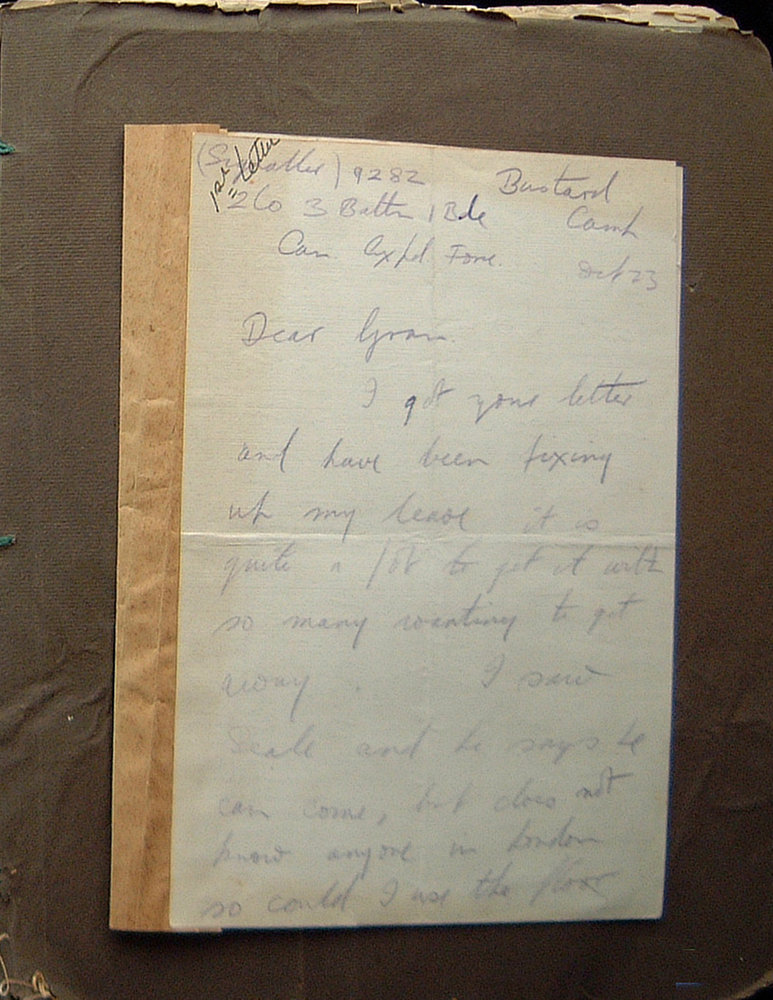 1st letter
(Signaller) 9282 Bustard
2 Co 3 Battn 1 Bde Camp
Can. Expd. Force. Oct 23
Dear Gran.
I got your letter
and have been fixing
up my leave it is
quite a lot to get it with
so many wanting to get
away. I saw
and he says he
can come, but does not
know anyone in London
so could I use the floor